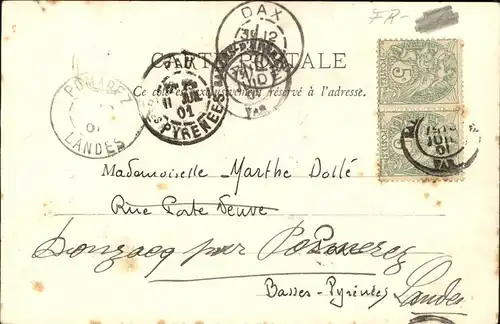 FR-
DAX
12
CARTE POSTALE
Ce côté est exclusivement réservé à l'adresse.
POMAREZ
01
LANDES
PAU
11 JUIN
01
PYRENEES
VAR
5
5
JUIN
01
VAR
Mademoiselle Marthe Dollé
Rue Porte Neuve
Donzacq par Pomarez
Basses-Pyrénées Landes